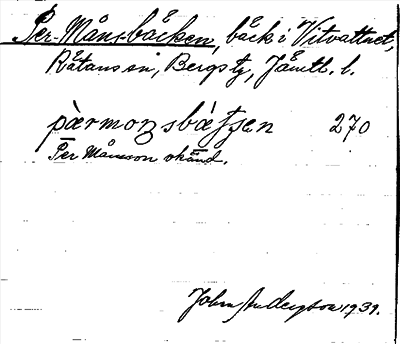 Per-Månsbäcken, bäck i Vitvattnet,
Råtans sn, Bergs tg, Jämtl. l.
pàrmoŋsbàʃʃen 270
Per Månsson okänd.
John Anderson 1939.